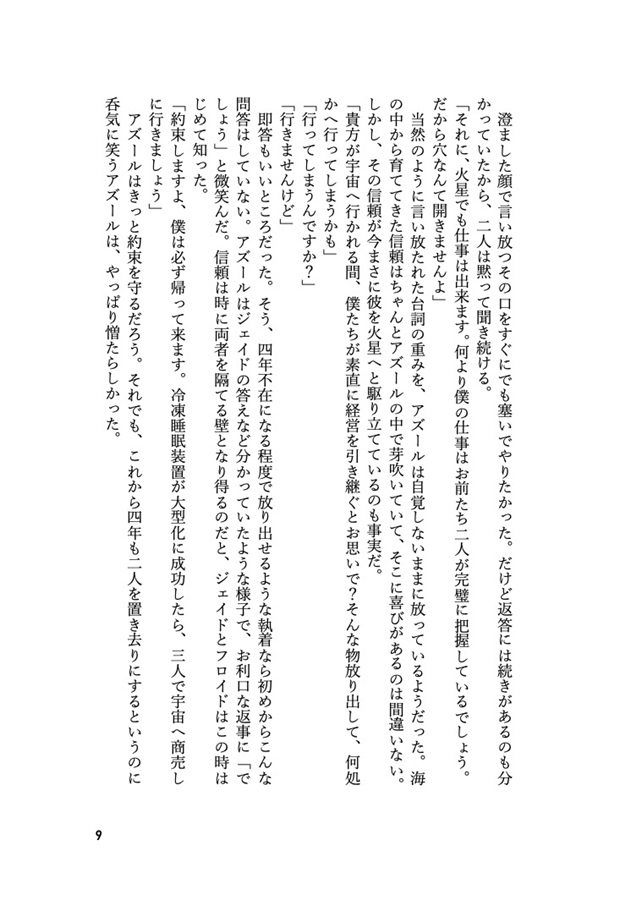 澄ました顔で言い放つその口をすぐにでも塞いでやりたかった。だけど返答には続きがあるのも分
かっていたから、二人は黙って聞き続ける。
「それに、火星でも仕事は出来ます。何より僕の仕事はお前たち二人が完璧に把握しているでしょう。
だから穴なんて開きませんよ」
　当然のように言い放たれた台詞の重みを、アズールは自覚しないままに放っているようだった。海
の中から育ててきた信頼はちゃんとアズールの中で芽吹いていて、そこに喜びがあるのは間違いない。
しかし、その信頼が今まさに彼を火星へと駆り立てているのも事実だ。
「貴方が宇宙へ行かれる間、僕たちが素直に経営を引き継ぐとお思いで？そんな物放り出して、何処
かへ行ってしまうかも」
「行ってしまうんですか？」
「行きませんけど」
　即答もいいところだった。そう、四年不在になる程度で放り出せるような執着なら初めからこんな
問答はしていない。アズールはジェイドの答えなど分かっていたような様子で、お利口な返事に「で
しょう」と微笑んだ。信頼は時に両者を隔てる壁となり得るのだと、ジェイドとフロイドはこの時は
じめて知った。
「約束しますよ、僕は必ず帰って来ます。冷凍睡眠装置が大型化に成功したら、三人で宇宙へ商売し
に行きましょう」
　アズールはきっと約束を守るだろう。それでも、これから四年も二人を置き去りにするというのに
呑気に笑うアズールは、やっぱり憎たらしかった。
9